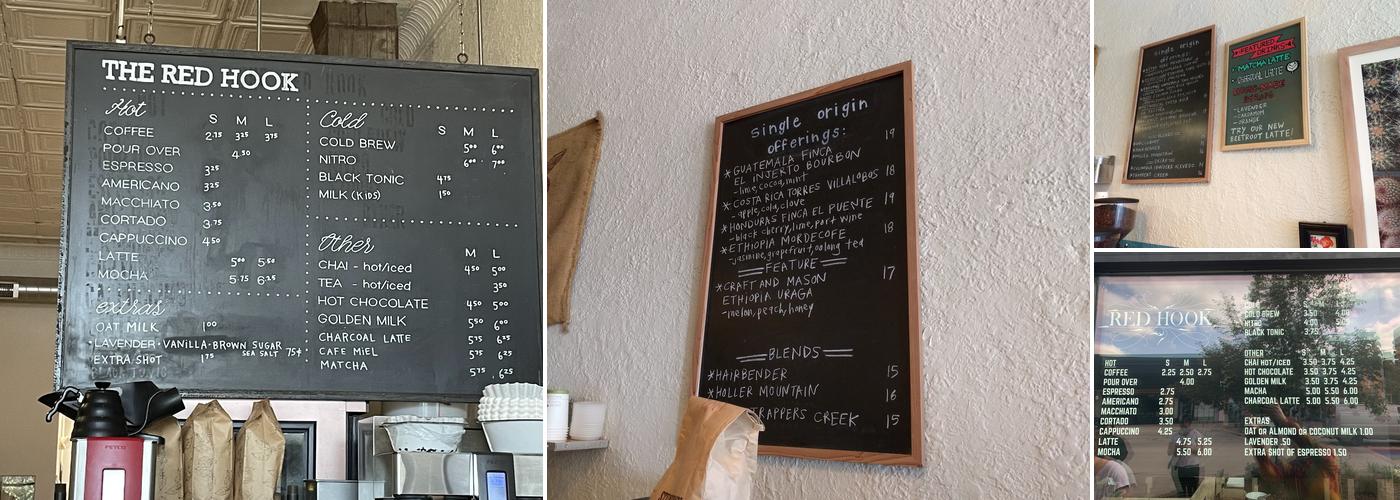 THE RED HOOK
Hot
S M L
COFFEE 2.75 3.25 3.75
POUR OVER 4.50
ESPRESSO 3.25
AMERICANO 3.25
MACCHIATO 3.50
CORTADO 3.75
CAPPUCCINO 4.50
LATTE 5.00 5.50
MOCHA 5.75 6.25
extras
OAT MILK 1.00
LAVENDER • VANILLA • BROWN SUGAR
SEA SALT 75¢
EXTRA SHOT 1.75
Cold
S M L
COLD BREW 5.00 6.00
NITRO 6.00 7.00
BLACK TONIC 4.75
MILK (KIDS) 1.50
Other
M L
CHAI - hot/iced 4.50 5.00
TEA - hot/iced 3.50
HOT CHOCOLATE 4.50 5.00
GOLDEN MILK 5.50 6.00
CHARCOAL LATTE 5.75 6.25
CAFE MIEL 5.75 6.25
MATCHA 5.75 6.25
FETCO
Single origin
offerings:
*GUATEMALA FINCA 19
EL INJERTO BOURBON
-lime, cocoa, mint
*COSTA RICA TORRES VILLALOBOS 18
-apple, cola, clove
*HONDURAS FINCA EL PUENTE 19
-black cherry, lime, port wine
*ETHIOPIA MORDECOFE 18
-jasmine, grapefruit, oolong tea
FEATURE
*CRAFT AND MASON 17
ETHIOPIA URAGA
-melon, peach, honey
BLENDS
*HAIRBENDER 15
*HOLLER MOUNTAIN 16
TRAPPERS CREEK 15
Single origin
offerings:
FEATURED
DRINKS
•MATCHA LATTE
•CHARCOAL LATTE
-LAVENDER
-CARDAMOM
-ORANGE
TRY OUR NEW
BEETROOT LATTE!
RED HOOK
HOT S M L
COFFEE 2.25 2.50 2.75
POUR OVER 4.00
ESPRESSO 2.75
AMERICANO 2.75
MACCHIATO 3.00
CORTADO 3.50
CAPPUCCINO 4.25
LATTE 4.75 5.25
MOCHA 5.50 6.00
COLD BREW 3.50 4.00
NITRO 4.00
BLACK TONIC 3.75
OTHER S M L
CHAI HOT/ICED 3.50 3.75 4.25
HOT CHOCOLATE 3.50 3.75 4.25
GOLDEN MILK 3.50 3.75 4.25
MATCHA 5.00 5.50 6.00
CHARCOAL LATTE 5.00 5.50 6.00
EXTRAS
OAT OR ALMOND OR COCONUT MILK 1.00
LAVENDER .50
EXTRA SHOT OF ESPRESSO 1.50